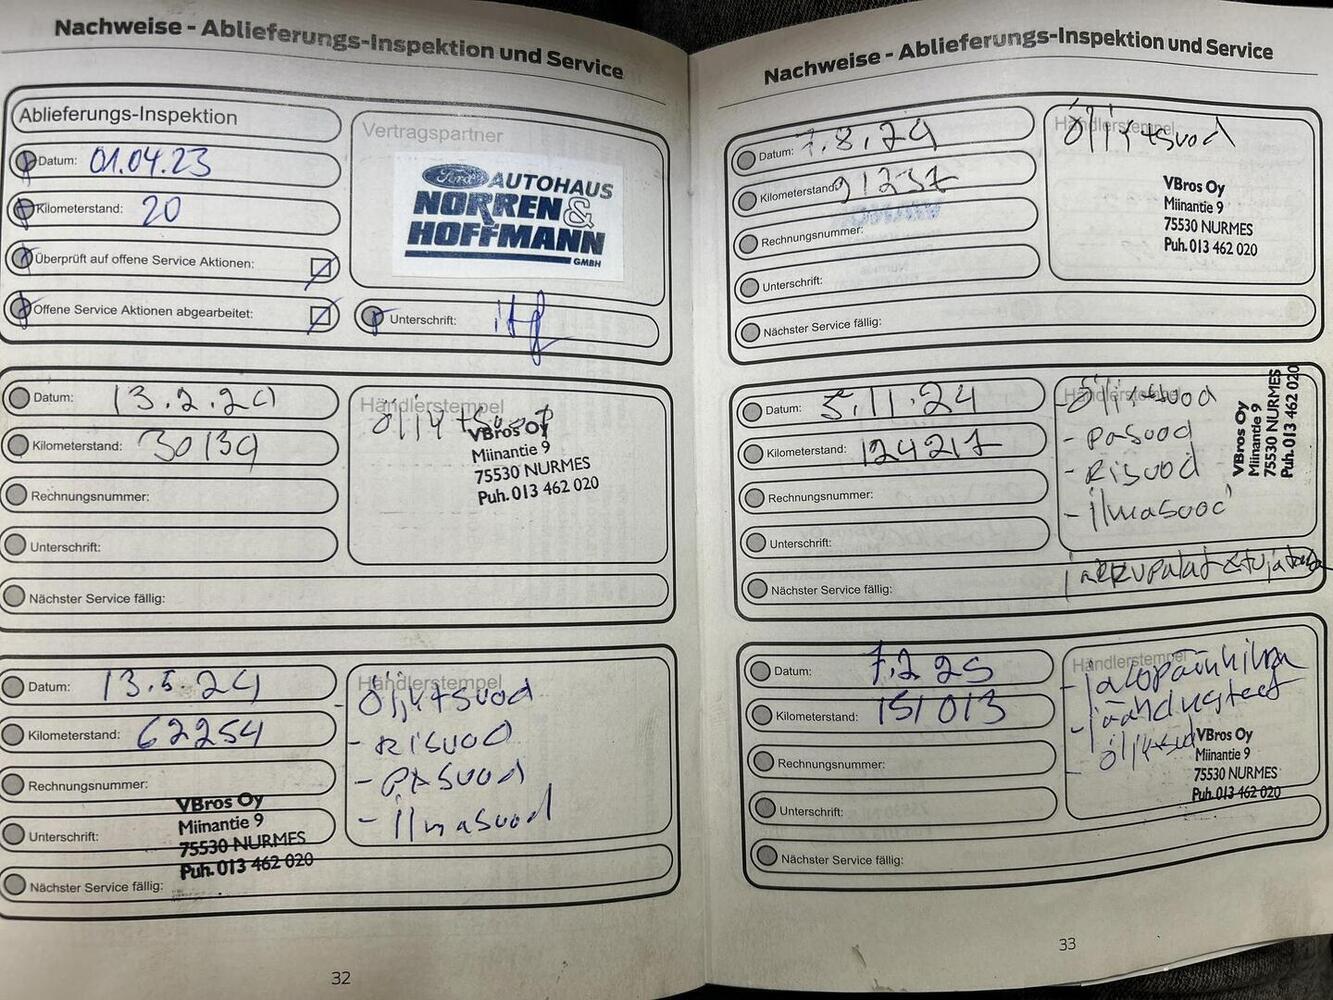 Nachweise - Ablieferungs-Inspektion und Service
Ablieferungs-Inspektion
Datum: 01.04.23
Kilometerstand: 20
Überprüft auf offene Service Aktionen:
Offene Service Aktionen abgearbeitet:
Vertragspartner
Ford AUTOHAUS
NORREN &
HOFFMANN
GMBH
Unterschrift:
Datum: 13.2.24
Kilometerstand: 30139
Rechnungsnummer:
Unterschrift:
Nächster Service fällig:
Händlerstempel
VBros Oy
Miinantie 9
75530 NURMES
Puh. 013 462 020
Datum: 13.5.24
Kilometerstand: 62254
Rechnungsnummer:
Unterschrift:
Nächster Service fällig:
VBros Oy
Miinantie 9
75530 NURMES
Puh. 013 462 020
Händlerstempel
- Öljy+suod
- RISUOD
- PASUOD
- ilmasuod
32
Nachweise - Ablieferungs-Inspektion und Service
Datum: 7.8.24
Kilometerstand: 91257
Rechnungsnummer:
Unterschrift:
Nächster Service fällig:
Händlerstempel
Öljy+suod
VBros Oy
Miinantie 9
75530 NURMES
Puh. 013 462 020
Datum: 5.11.24
Kilometerstand: 124217
Rechnungsnummer:
Unterschrift:
Nächster Service fällig:
Händlerstempel
- Öljy+suod
- pasuod
- Risuod
- ilmasuod
VBros Oy
Miinantie 9
75530 NURMES
Puh. 013 462 020
Datum: 7.2.25
Kilometerstand: 151013
Rechnungsnummer:
Unterschrift:
Nächster Service fällig:
Händlerstempel
- jakopäänhihna
- jäähdytysneste
- öljy+suod
VBros Oy
Miinantie 9
75530 NURMES
Puh. 013 462 020
33